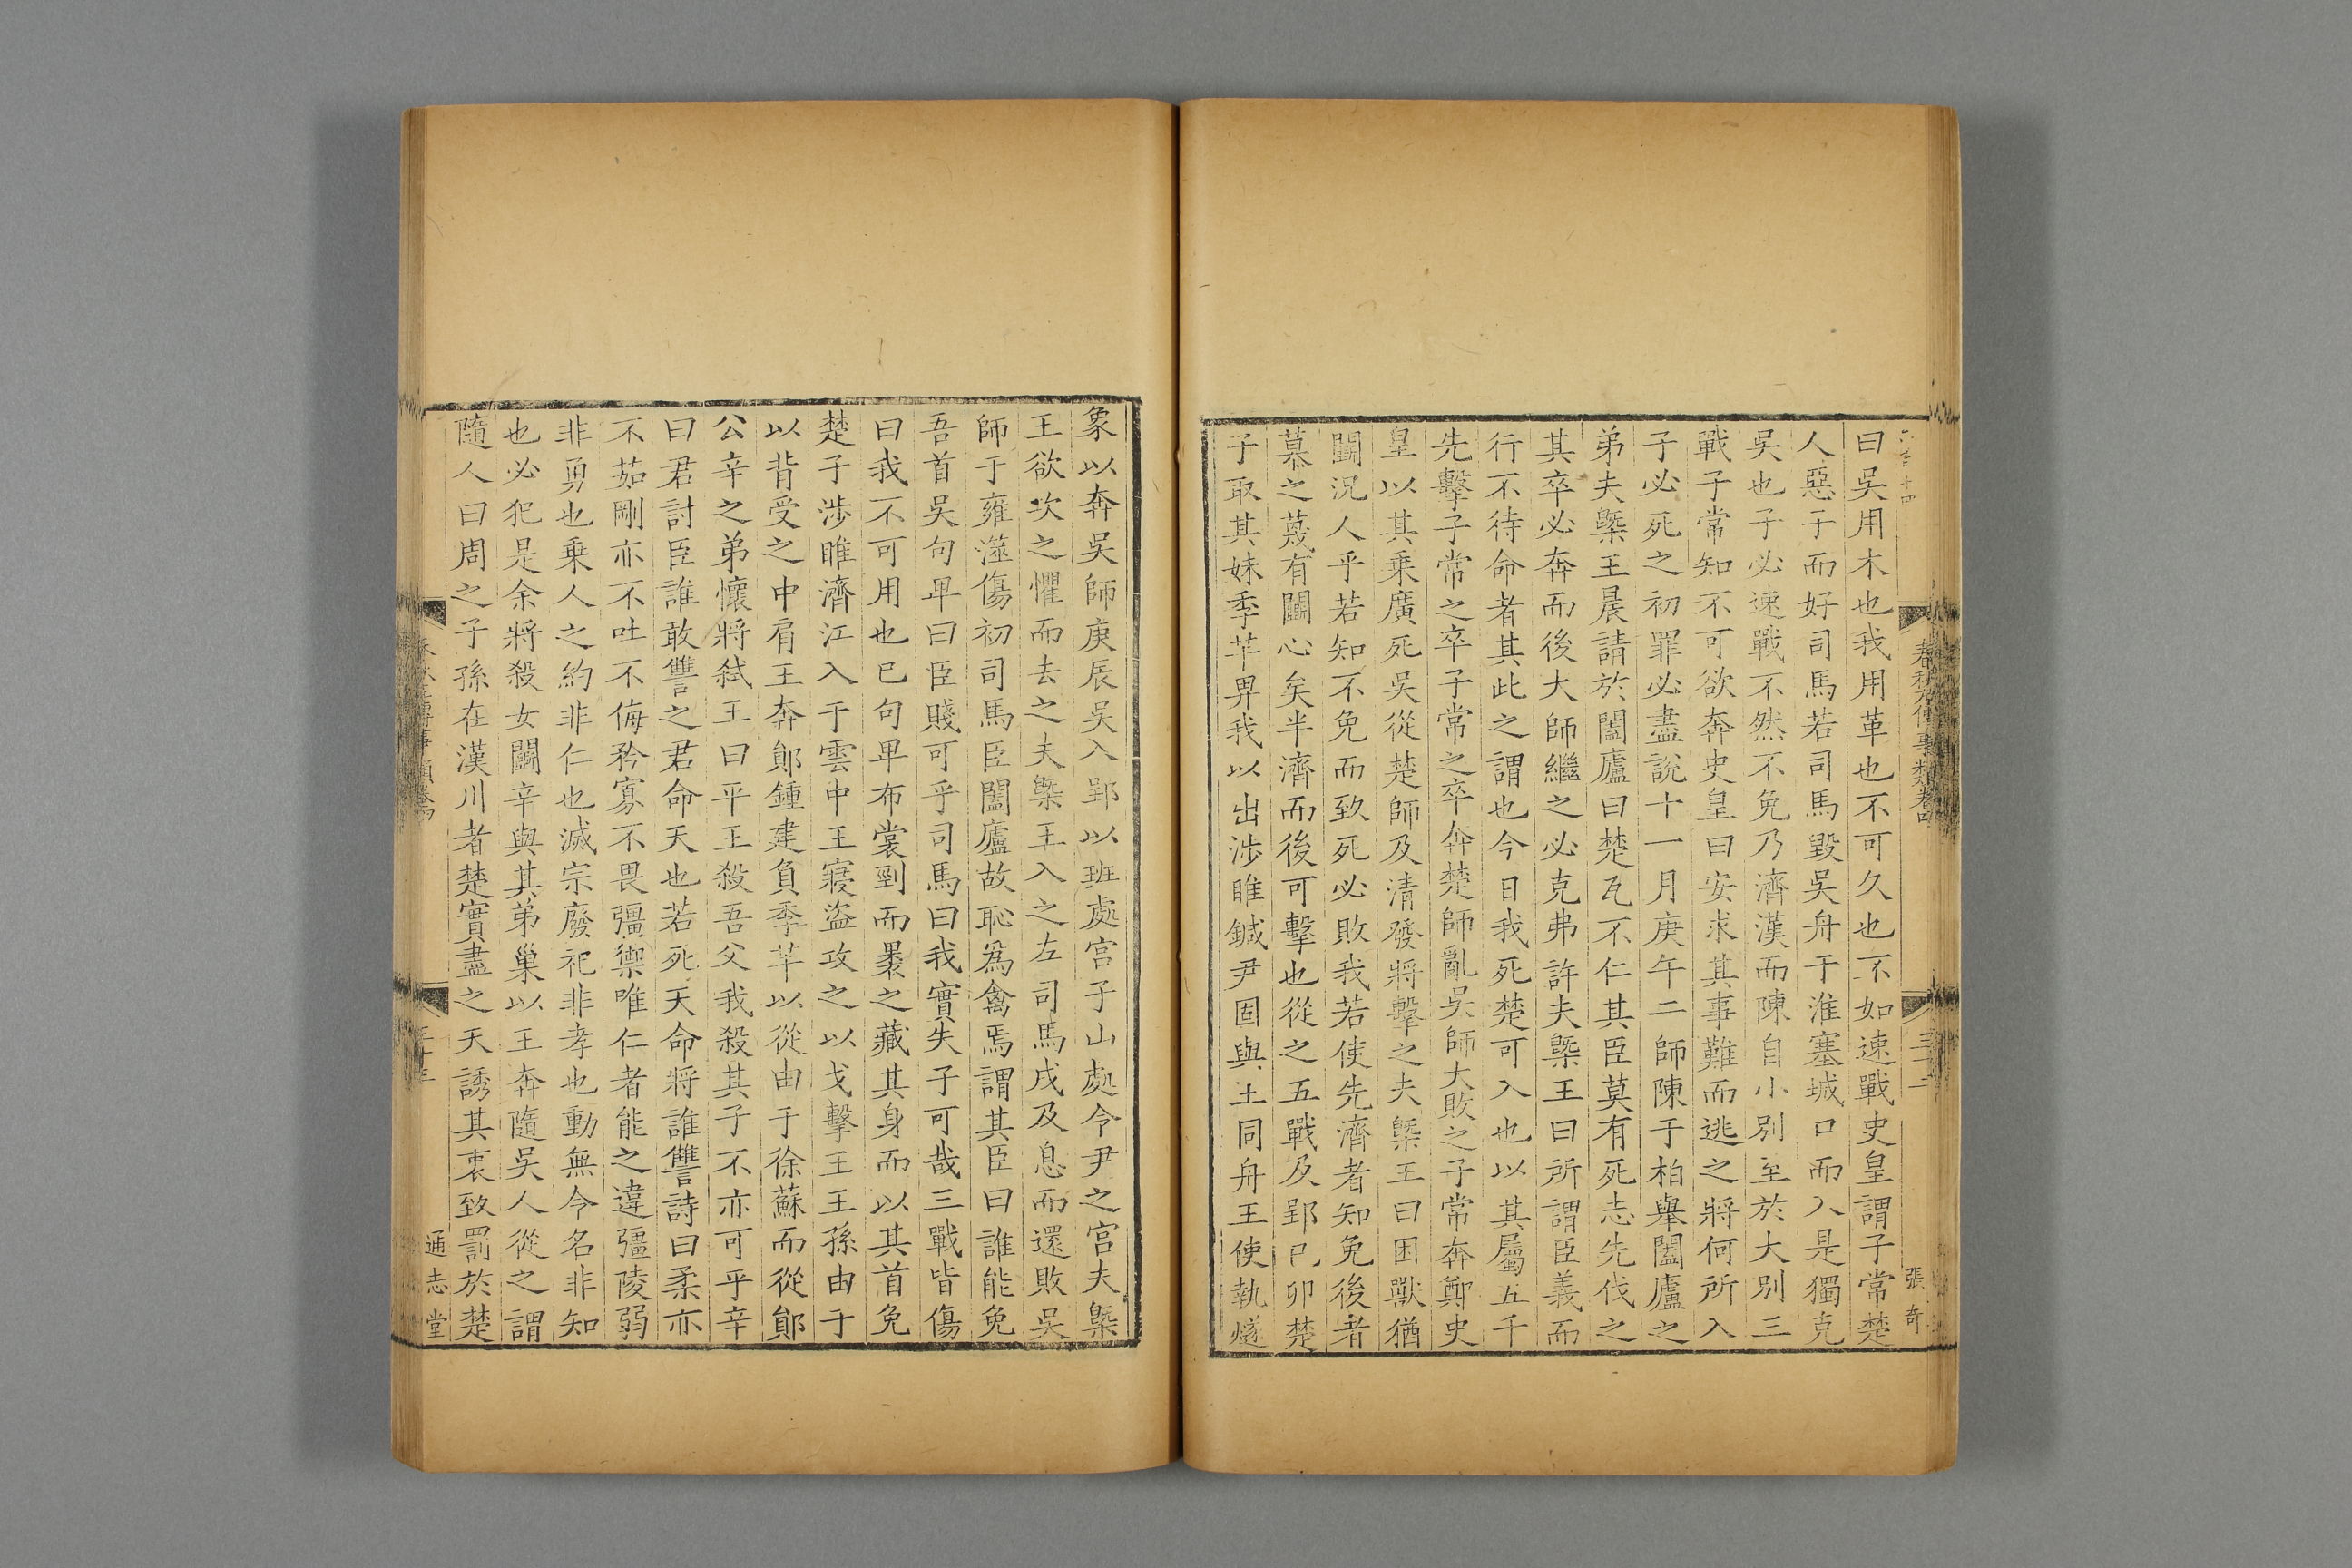 曰吳用木也我用革也不可久也不如速戰史皇謂子常楚
人惡子而好司馬若司馬毀吳舟于淮塞城口而入是獨克
吳也子必速戰不然不免乃濟漢而陳自小別至於大別三
戰子常知不可欲奔史皇曰安求其事難而逃之將何所入
子必死之初罪必盡說十一月庚午二師陳于柏舉闔廬之
弟夫槩王晨請於闔廬曰楚瓦不仁其臣莫有死志先伐之
其卒必奔而後大師繼之必克弗許夫槩王曰所謂臣義而
行不待命者其此之謂也今日我死楚可入也以其屬五千
先擊子常之卒子常之卒奔楚師亂吳師大敗之子常奔鄭史
皇以其乘廣死吳從楚師及清發將擊之夫槩王曰困獸猶
鬬況人乎若知不免而致死必敗我若使先濟者知免後者
慕之蔑有鬬心矣半濟而後可擊也從之五戰及郢已卯楚
子取其妹季芊畀我以出涉睢鍼尹固與王同舟王使執燧
春秋左傳事類卷四
張奇
象以奔吳師庚辰吳入郢以班處宫子山處令尹之宫夫槩
王欲攻之懼而去之夫槩王入之左司馬戌及息而還敗吳
師于雍澨傷初司馬臣闔廬故恥爲禽焉謂其臣曰誰能免
吾首吳句卑曰臣賤可乎司馬曰我實失子可哉三戰皆傷
曰我不可用也已句卑布裳剄而褁之藏其身而以其首免
楚子涉睢濟江入于雲中王寢盜攻之以戈擊王王孫由于
以背受之中肩王奔鄖鍾建負季芊以從由于徐蘇而從鄖
公辛之弟懷將弑王曰平王殺吾父我殺其子不亦可乎辛
曰君討臣誰敢讐之君命天也若死天命將誰讐詩曰柔亦
不茹剛亦不吐不侮矜寡不畏彊禦唯仁者能之違彊陵弱
非勇也乗人之約非仁也滅宗廢祀非孝也動無令名非知
也必犯是余將殺女鬬辛與其弟巢以王奔隨吳人從之謂
隨人曰周之子孫在漢川者楚實盡之天誘其衷致罰於楚
通志堂